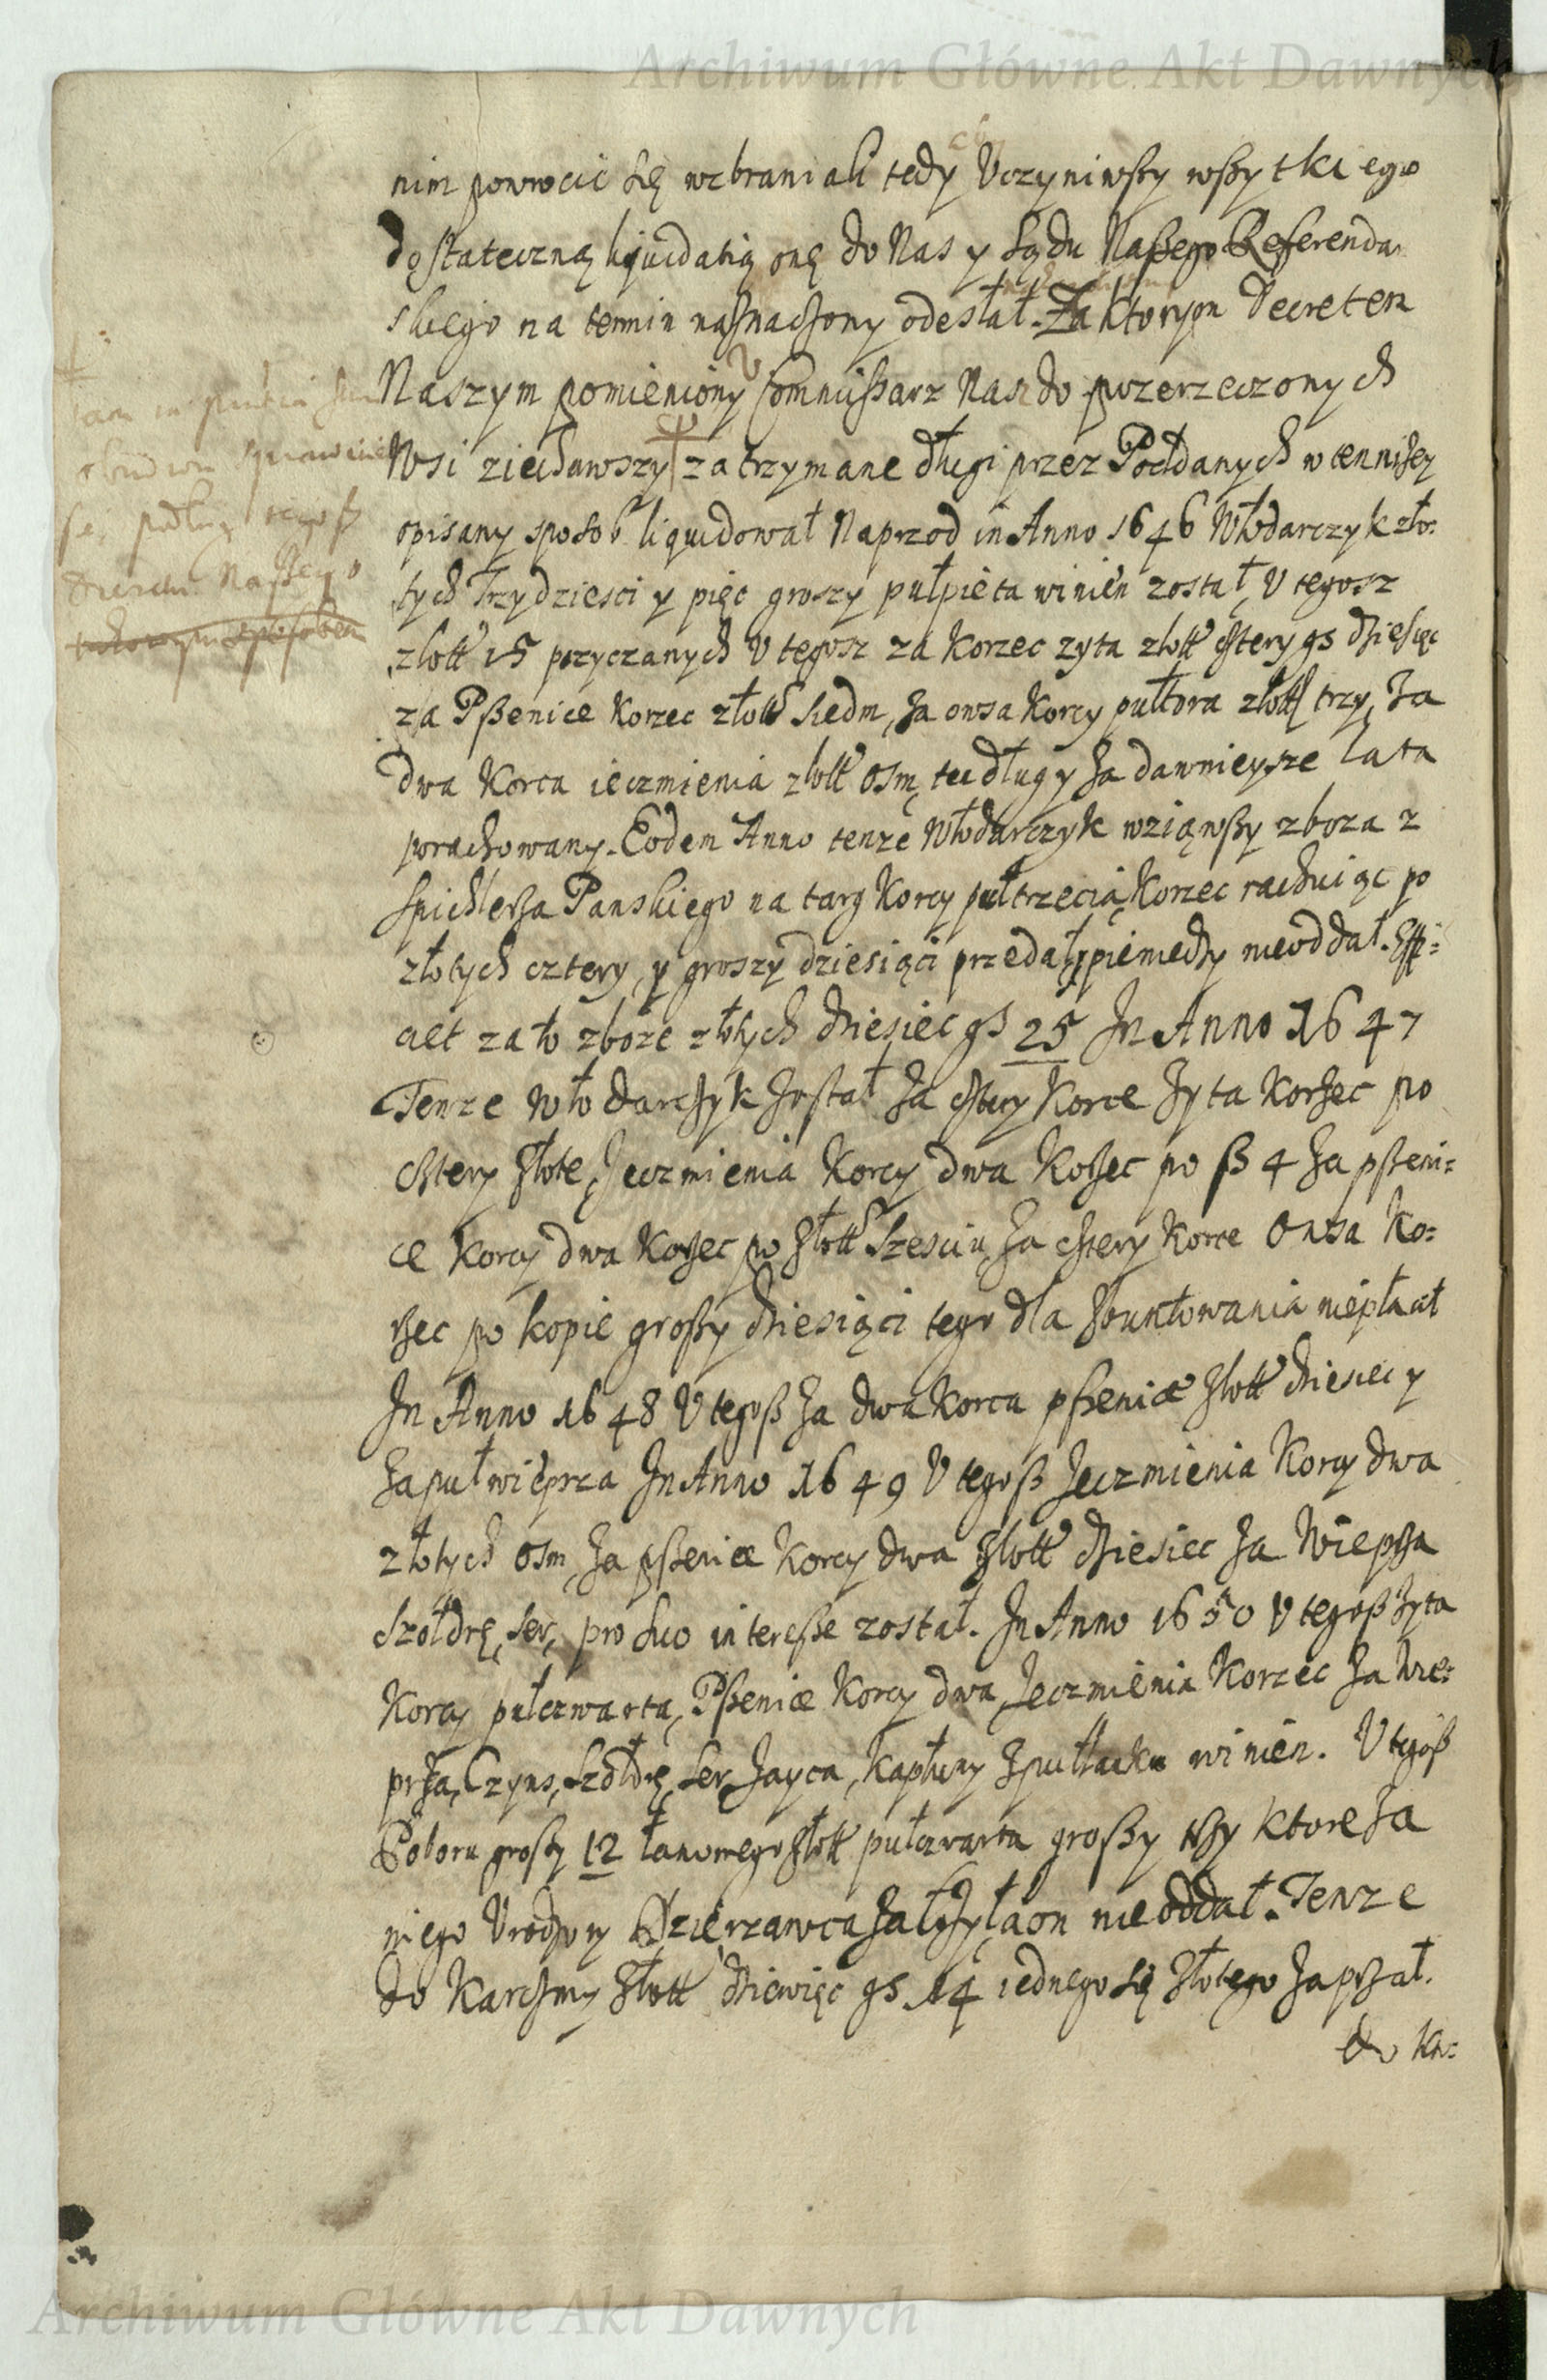 Archiwum Główne Akt Dawnych
nim powrocić się wzbraniali tedy Vczyniwszy wszytkiego
dostateczną liquidatią onę do Nas y Sądu Naszego Referendar
skiego na termin naznaczony odesłał. Za ktorym Decretem
Naszym pomieniony Commissarz Nasz do przerzeczonych
Wsi ziechawszy zatrzymane długi przez Poddanych w tenniżey
opisany sposob liquidował Naprzod in Anno 1646 Włodarczyk zło:
tych Trzydziesci y pięc groszy pułpięta winien został, V tegosz
złott 15 pozyczanych V tegosz za Korzec zyta złott cztery gs dziesięc
za Pszenice Korzec złott siedm, za owsa Korcy pułtora złott trzy, za
dwa Korca ieczmienia złott osm, ten długy za dawnieysze lata
porachowany. Eodem Anno tenze Włodarczyk wziąwszy zboza z
spichlerza Panskiego na targ Korcy pułtrzecią, Korzec rachuiąc po
złotych cztery, y groszy dziesiąci przedał, pieniedzy nieoddał. Effi:
ciet za to zboze złotych dziesiec gs 25 In Anno 1647
Tenze Włodarczyk został za cztery Korce zyta Korzec po
cztery złote, Jeczmienia Korcy dwa Korzec po ß 4 za pszeni:
ce Korcy dwa Korzec po złott Szesciu, za cztery Korce Owsa Ko:
rzec po kopie groszy dziesiąci tego dla zbuntowania niepłacił
In Anno 1648 V tegosz za dwa Korca pszenice złott dziesiec y
za puł wieprza In Anno 1649 V tegosz Jeczmienia Korcy dwa
złotych osm, za pszenice Korcy dwa złott dziesiec za Wieprza
Szołdrę, ser, pro suo interesse został. In Anno 1650 V tegosz zyta
Korcy pułczwarta, Pszenice Korcy dwa, Jeczmienia Korzec za Wie:
prza, Czyns, Szołdrę, ser, Jayca, Kapłuny winien. V tegosz
Poboru groszy 12 łanowego złott pułczwarta groszy trzy ktore za
niego Vrodzony Dzierzawca załozył, a on nieoddał. Tenze
do Karczmy złott dziewięc gs 14 iednego się złotego zaprzał.
do Ka:
podług tegosz
Decretu Naszego
Archiwum Główne Akt Dawnych